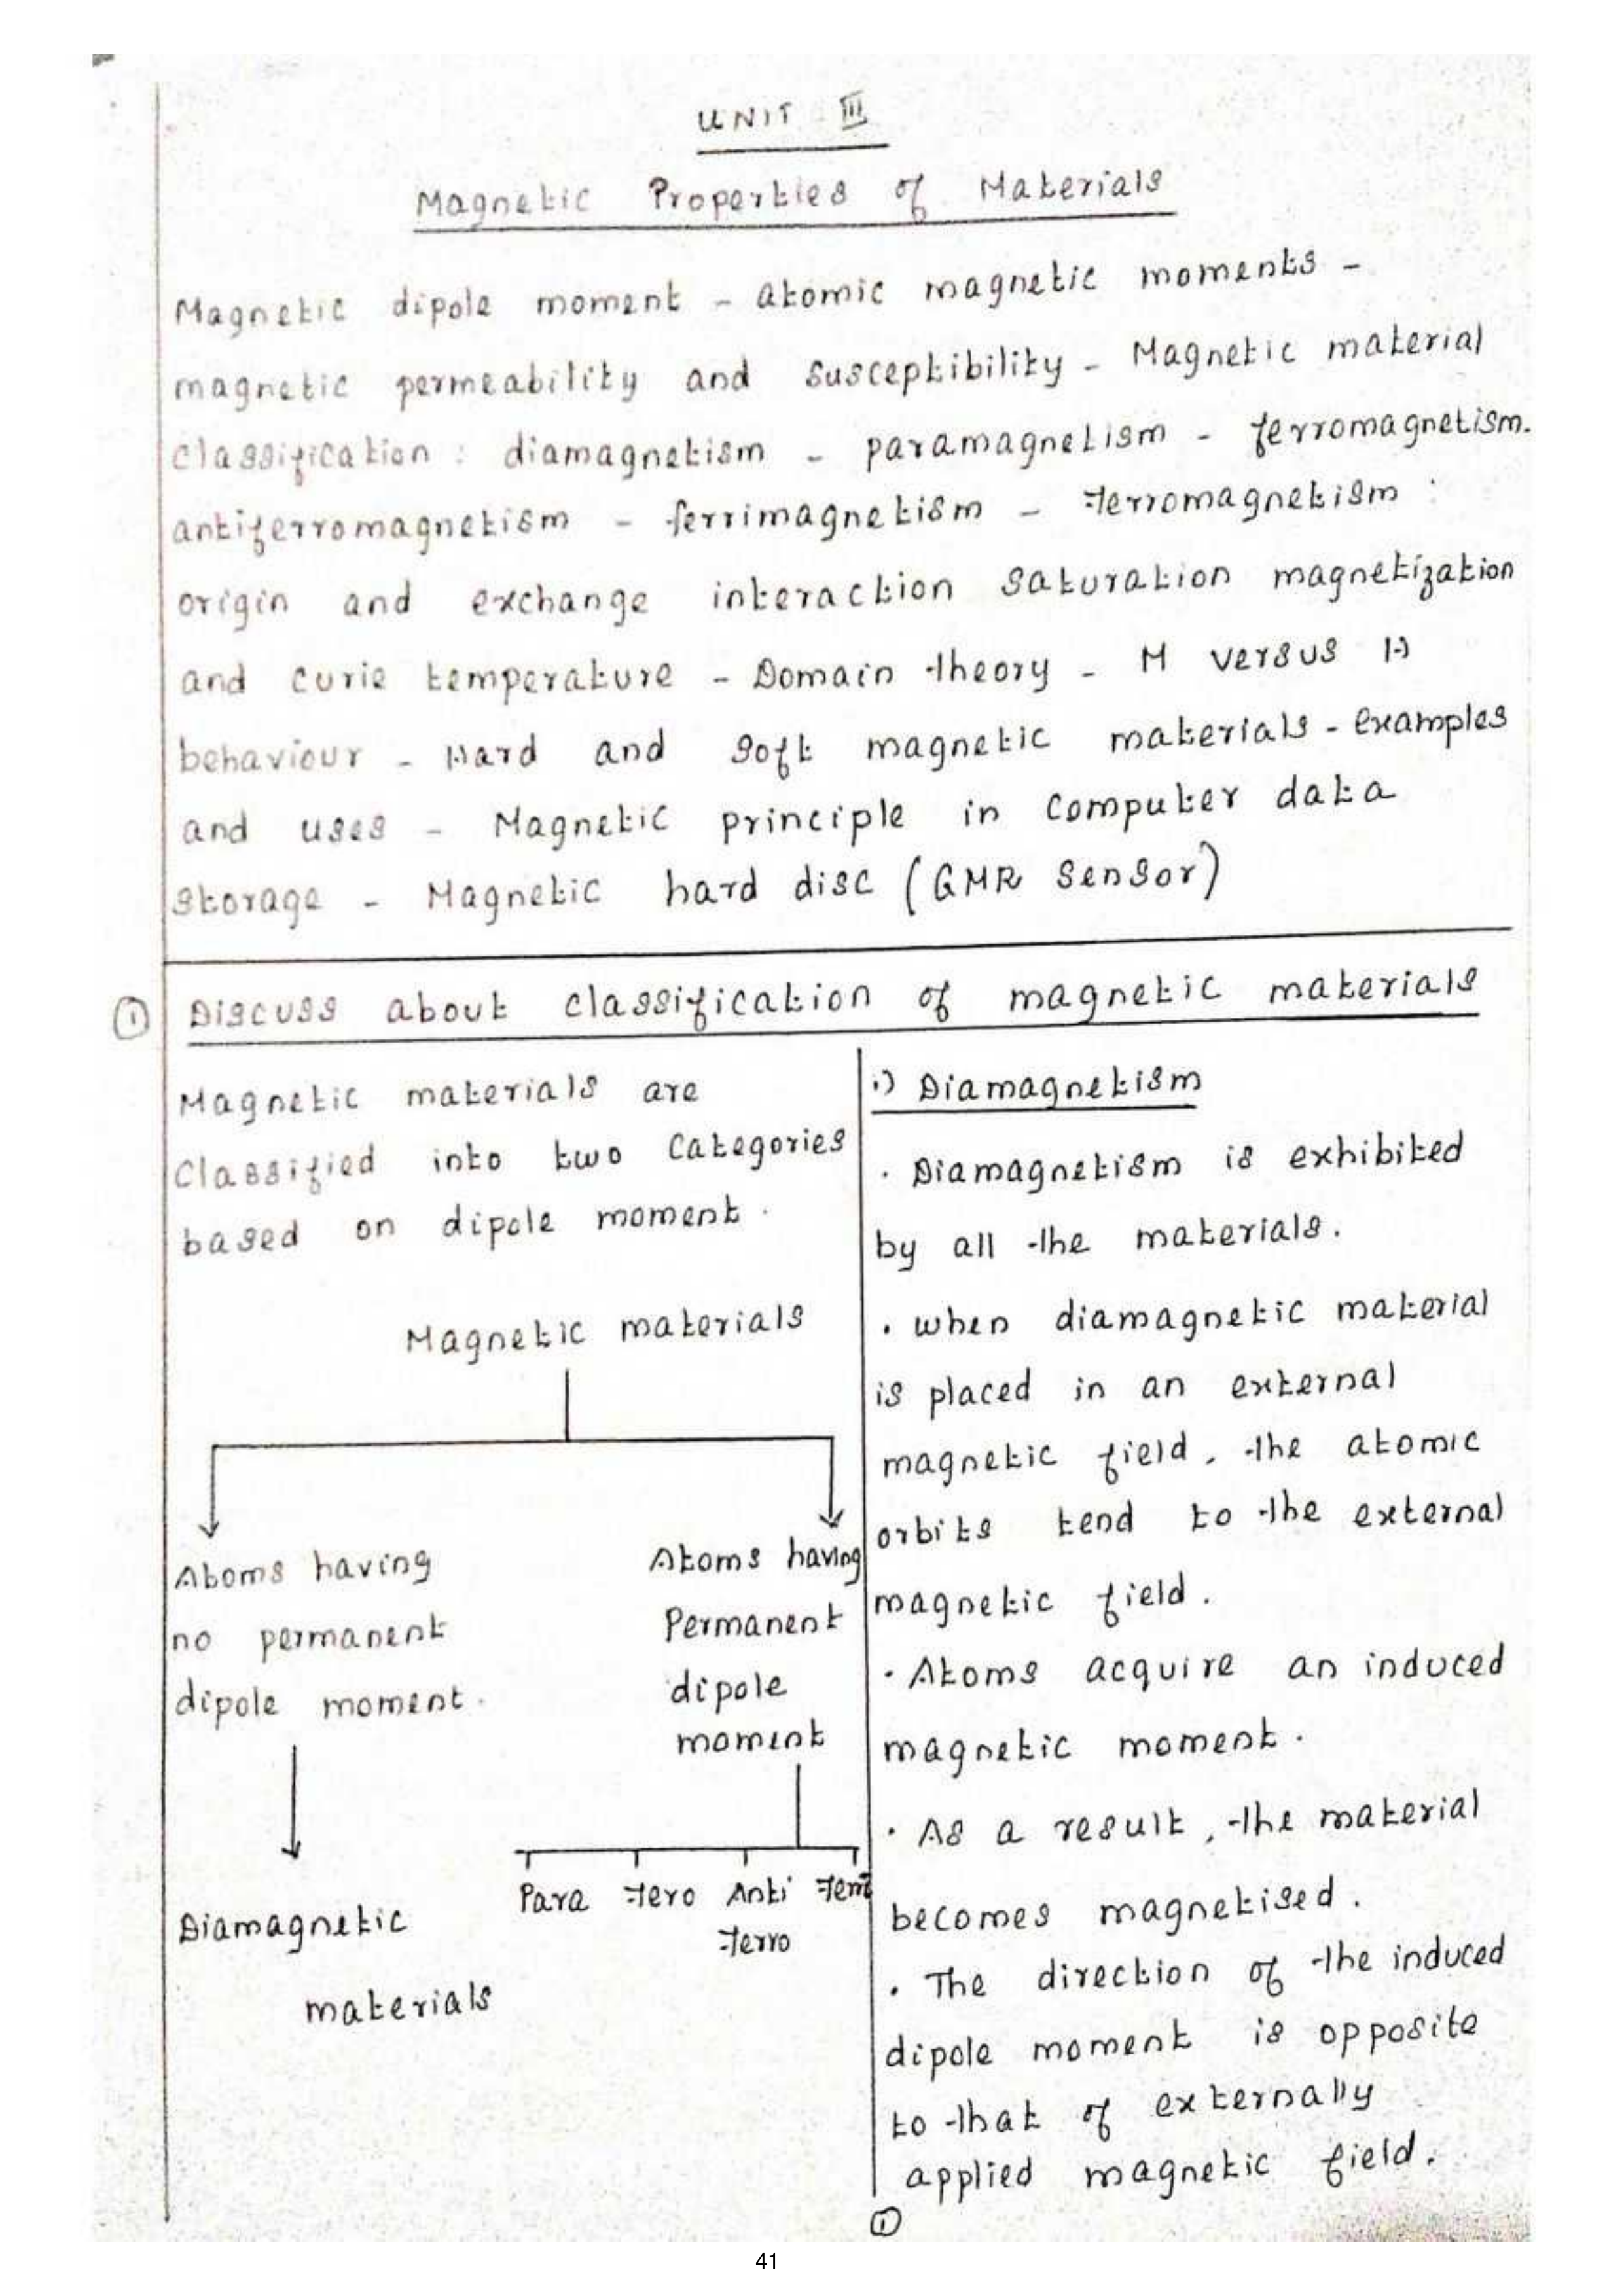 UNIT III
Magnetic Properties of Materials
Magnetic dipole moment - atomic magnetic moments -
magnetic permeability and susceptibility - Magnetic material
classification : diamagnetism - paramagnetism - ferromagnetism.
antiferromagnetism - ferrimagnetism - ferromagnetism :
origin and exchange interaction saturation magnetization
and curie temperature - Domain theory - M versus H
behaviour - Hard and soft magnetic materials - examples
and uses - Magnetic principle in computer data
storage - Magnetic hard disc (GMR sensor)
① Discuss about classification of magnetic materials
Magnetic materials are
classified into two categories
based on dipole moment.
Magnetic materials
Atoms having
no permanent
dipole moment.
Atoms having
Permanent
dipole
moment
Diamagnetic
materials
Para Fero Anti Ferri
Ferro
i) Diamagnetism
. Diamagnetism is exhibited
by all the materials.
. when diamagnetic material
is placed in an external
magnetic field, the atomic
orbits tend to the external
magnetic field.
. Atoms acquire an induced
magnetic moment.
. As a result, the material
becomes magnetised.
. The direction of the induced
dipole moment is opposite
to that of externally
applied magnetic field.
①
41